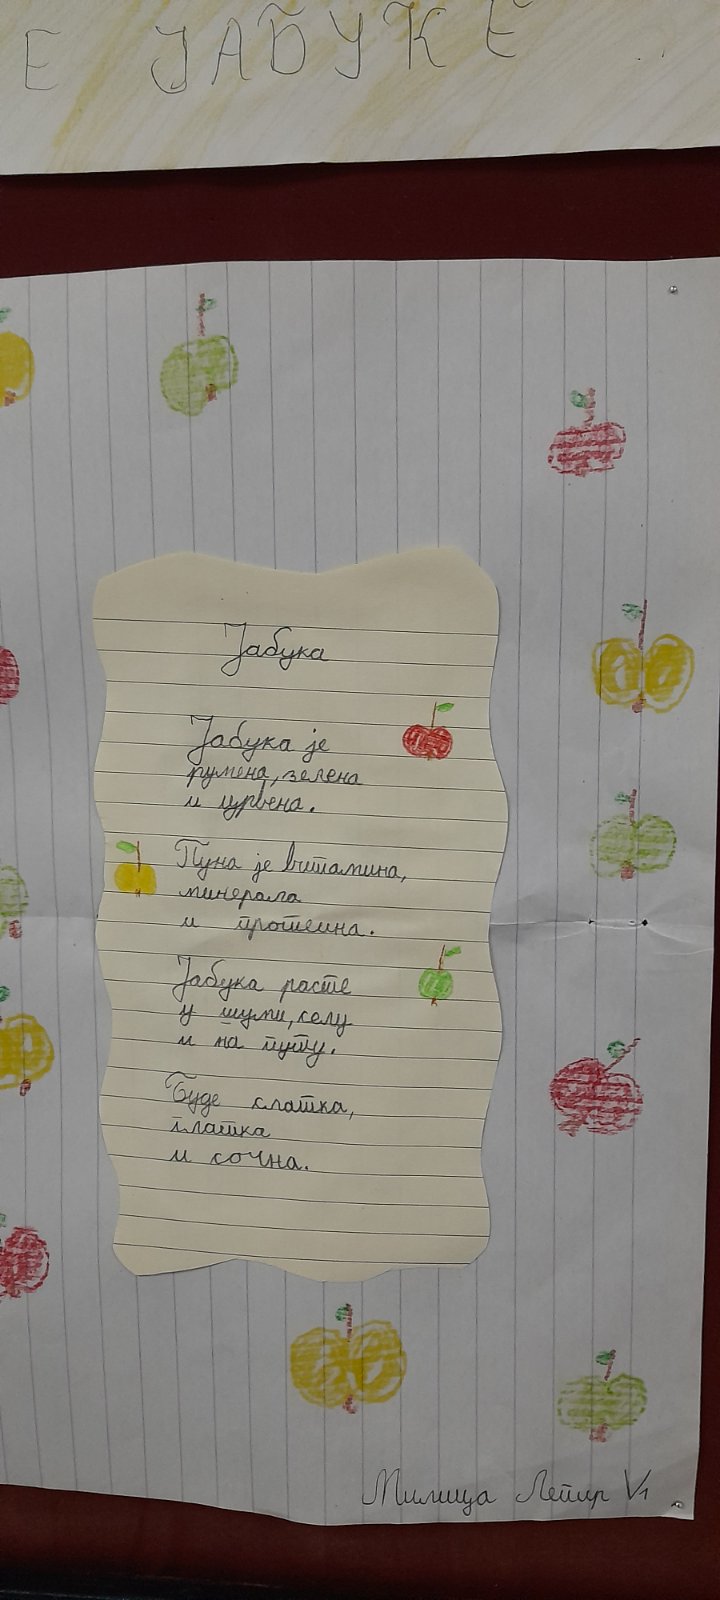 Е ЈАБУКЕ
Јабука
Јабука је
румена, зелена
и црвена.
Пуна је витамина,
минерала
и протеина.
Јабука расте
у шуми, селу
и на путу.
Буде слатка,
глатка
и сочна.
Милица Лепир V1